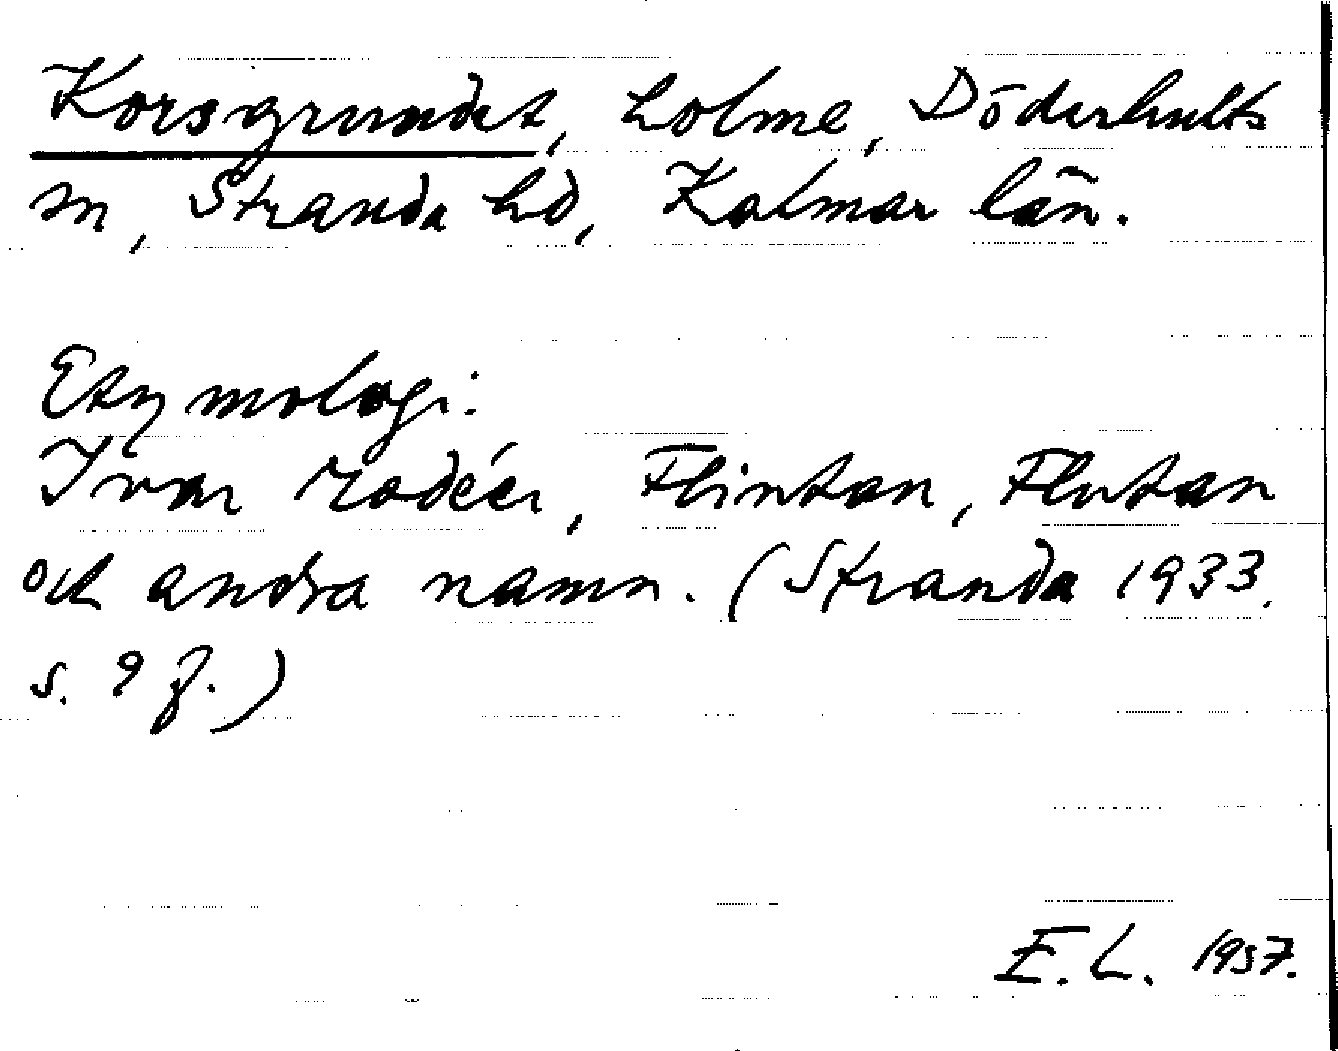 Korsgrundet, holme, Döderhults
sn, Stranda hd, Kalmar län.
Etymologi:
Ivar Modéer, Flintan, Flutan
och andra namn. (Stranda 1933.
s. 9 f.)
E. L. 1957.